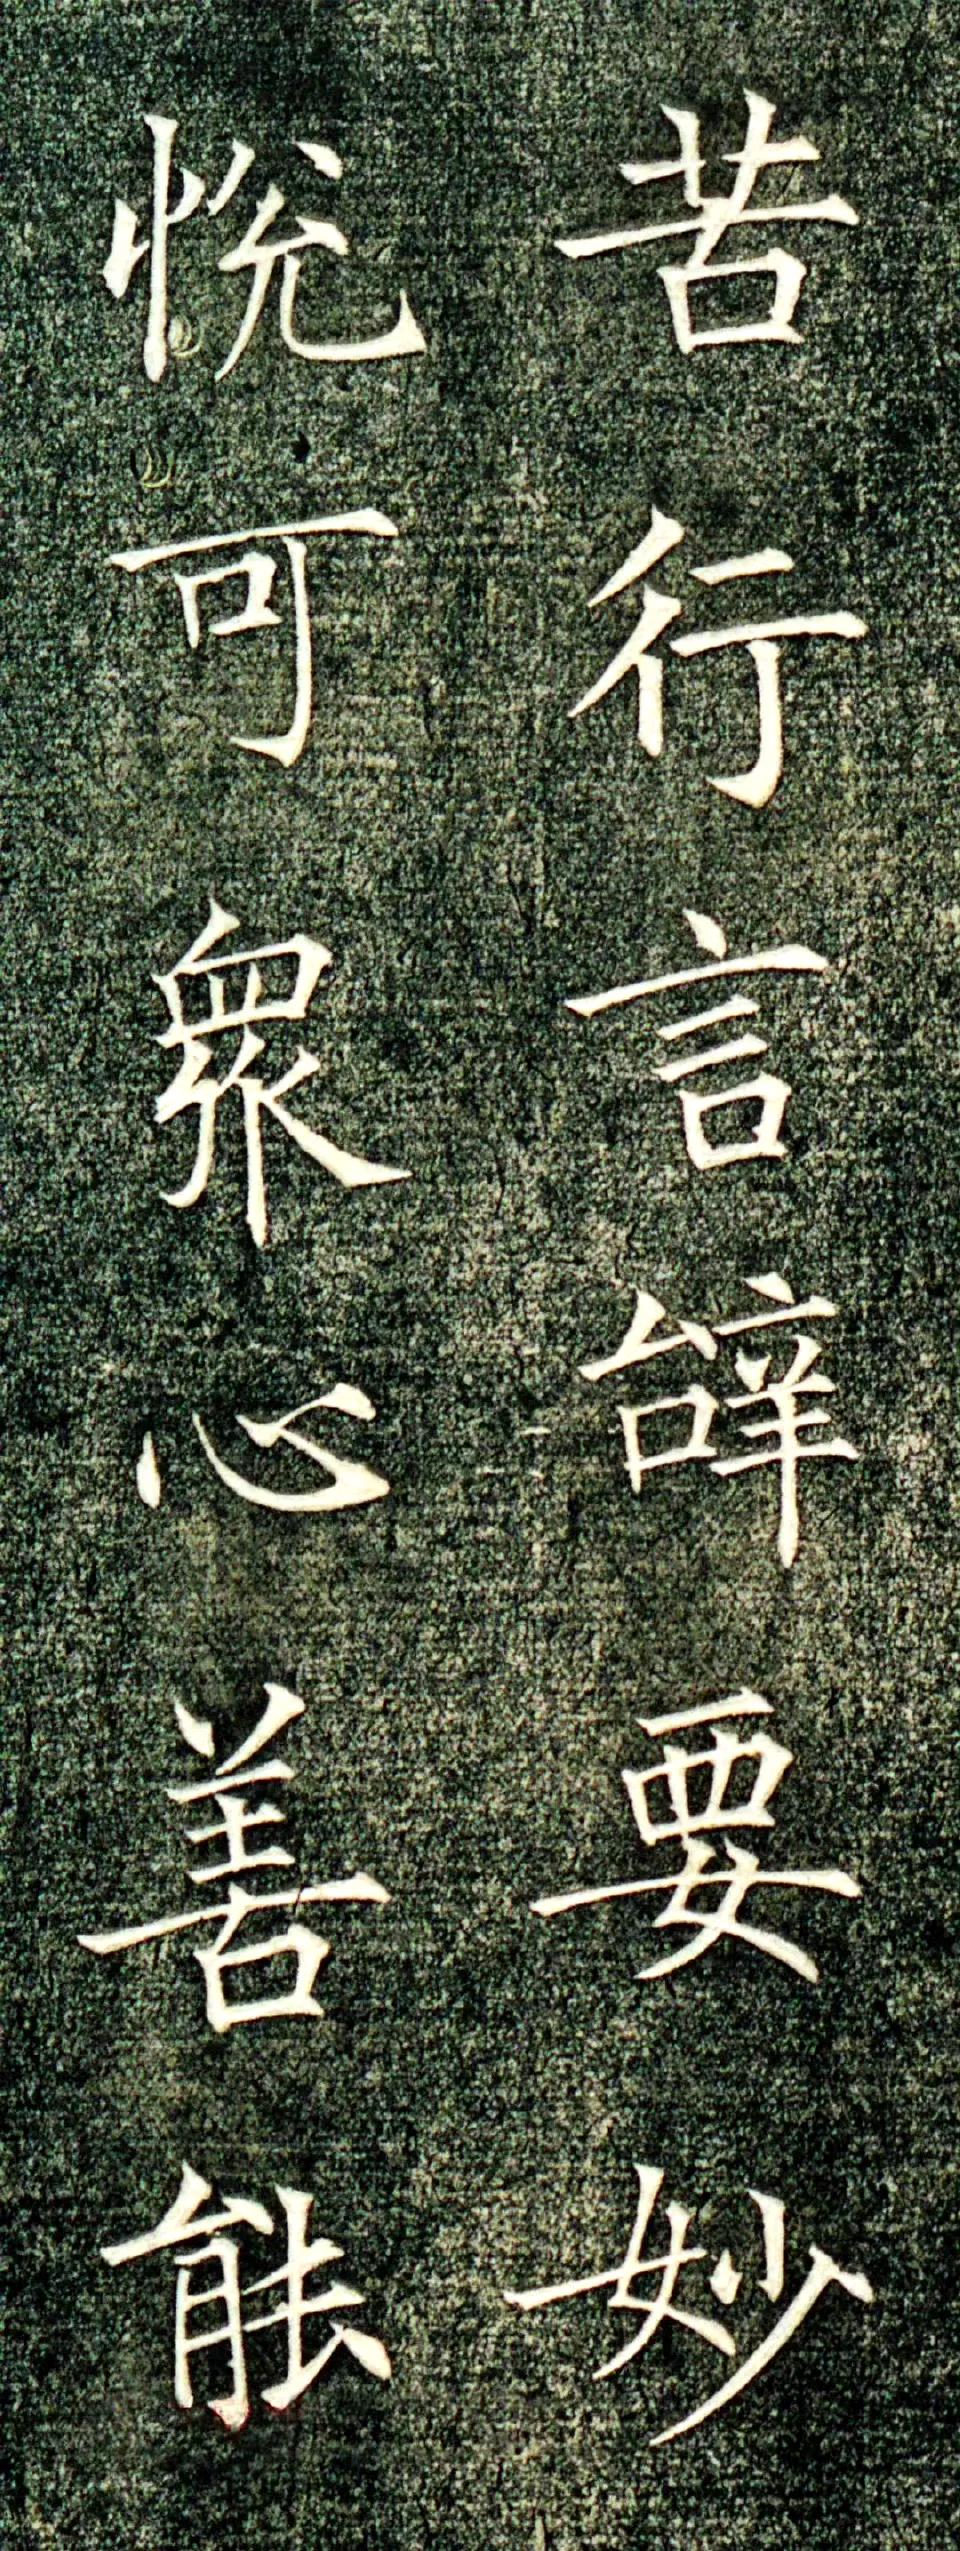 苦行言辞要妙
悅可衆心善能